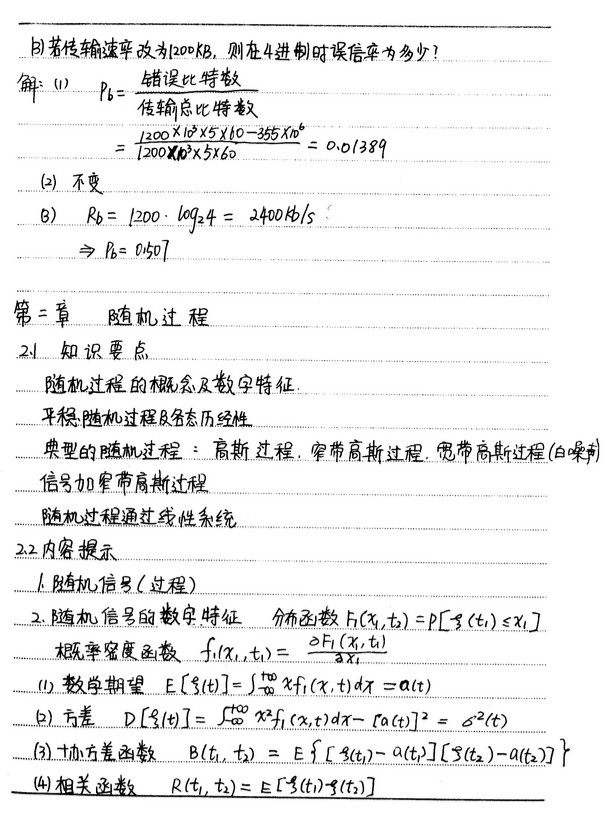 (3)若传输速率改为1200KB，则在4进制时误信率为多少？
解：(1) Pb = 错误比特数 / 传输总比特数
= (1200×10³×5×60-355×10⁶) / (1200×10³×5×60) = 0.01389
(2) 不变
(3) Rb = 1200·log₂4 = 2400kb/s
⇒ Pb = 0.507
第二章 随机过程
2.1 知识要点
随机过程的概念及数字特征.
平稳随机过程及各态历经性
典型的随机过程：高斯过程.窄带高斯过程.宽带高斯过程(白噪声)
信号加窄带高斯过程
随机过程通过线性系统
2.2 内容提示
1. 随机信号(过程)
2. 随机信号的数字特征 分布函数 F₁(x₁,t₂)=P[ξ(t₁)≤x₁]
概率密度函数 f₁(x₁,t₁) = ∂F₁(x₁,t₁) / ∂x₁
(1) 数学期望 E[ξ(t)]=∫₋∞⁺∞ xf₁(x,t)dx = a(t)
(2) 方差 D[ξ(t)] = ∫₋∞⁺∞ x²f₁(x,t)dx-[a(t)]² = σ²(t)
(3) 协方差函数 B(t₁,t₂) = E{[ξ(t₁)-a(t₁)][ξ(t₂)-a(t₂)]}
(4) 相关函数 R(t₁,t₂)=E[ξ(t₁)ξ(t₂)]